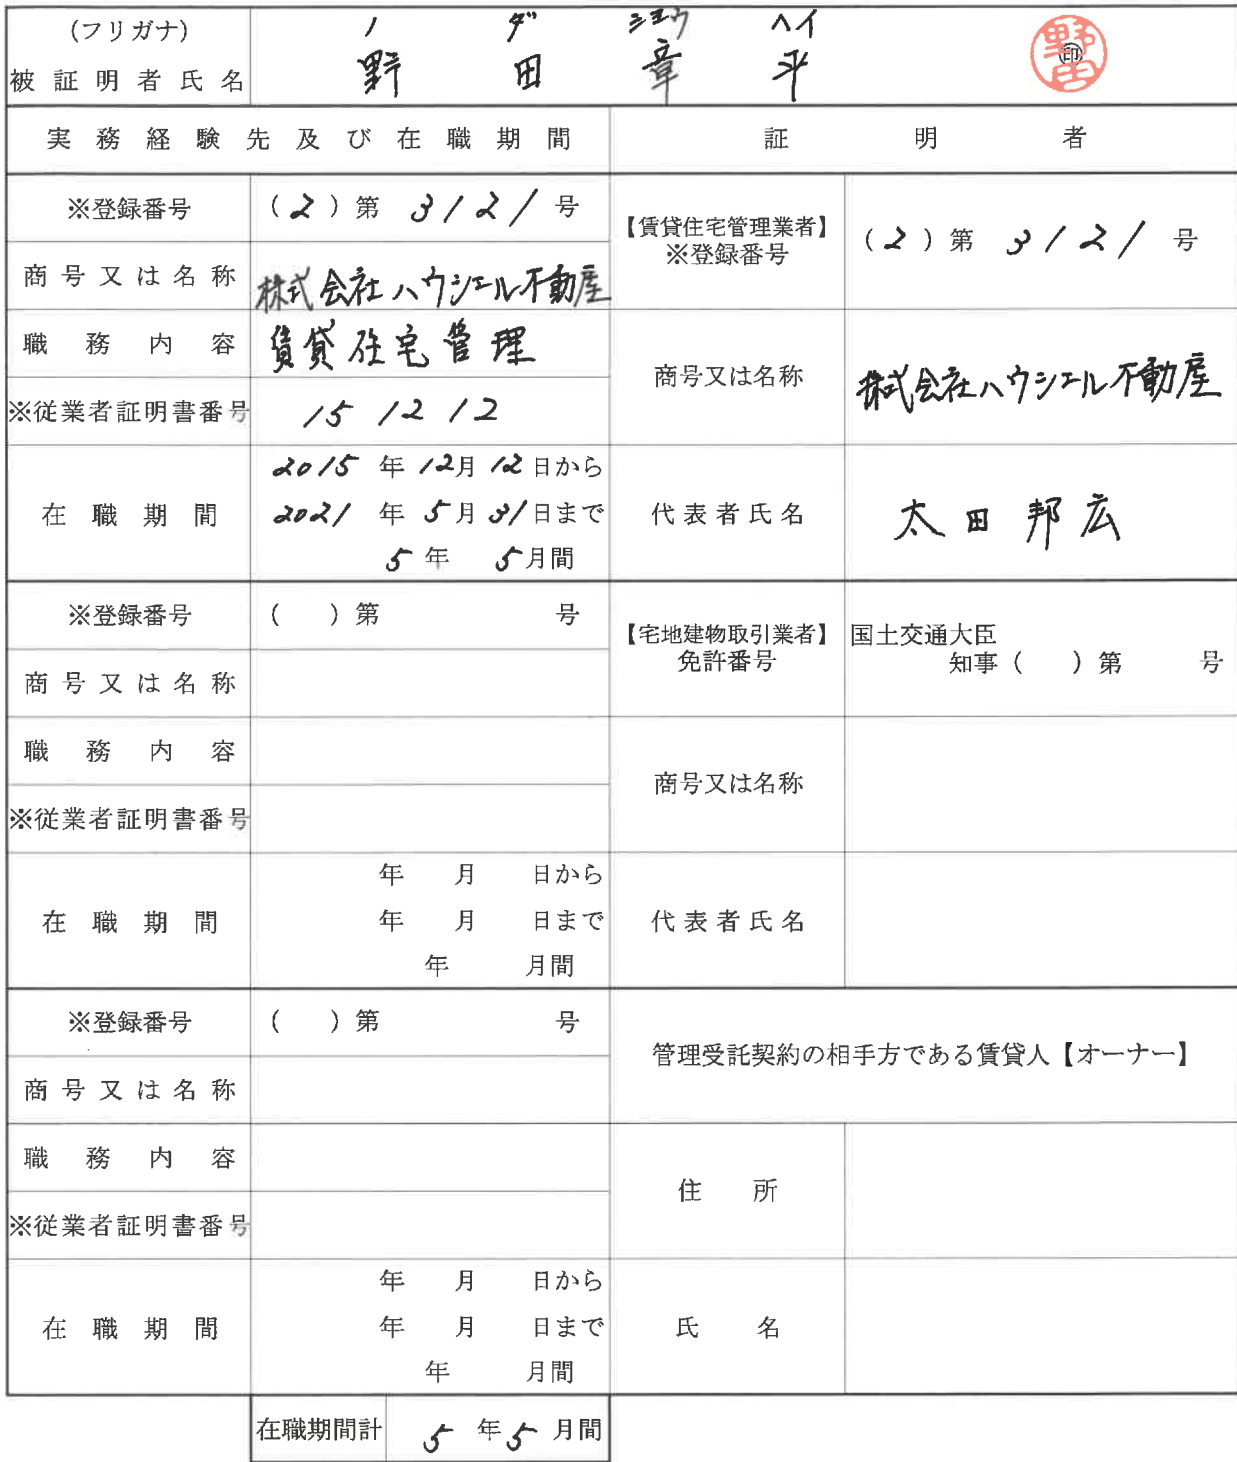 (フリガナ) ノ ダ ショウ ヘイ
被証明者氏名 野田章平 印
実務経験先及び在職期間 証明者
※登録番号 (2)第 3121 号
【賃貸住宅管理業者】
※登録番号 (2)第 3121 号
商号又は名称 株式会社ハウシエール不動産
職務内容 賃貸住宅管理
商号又は名称 株式会社ハウシエール不動産
※従業者証明書番号 151212
在職期間 2015年12月12日から
2021年5月31日まで
5年 5月間
代表者氏名 太田邦広
※登録番号 ( )第 号
【宅地建物取引業者】 国土交通大臣
免許番号 知事( )第 号
商号又は名称
職務内容
商号又は名称
※従業者証明書番号
在職期間 年 月 日から
年 月 日まで
年 月間
代表者氏名
※登録番号 ( )第 号
管理受託契約の相手方である賃貸人【オーナー】
商号又は名称
職務内容
住所
※従業者証明書番号
在職期間 年 月 日から
年 月 日まで
年 月間
氏名
在職期間計 5年5月間